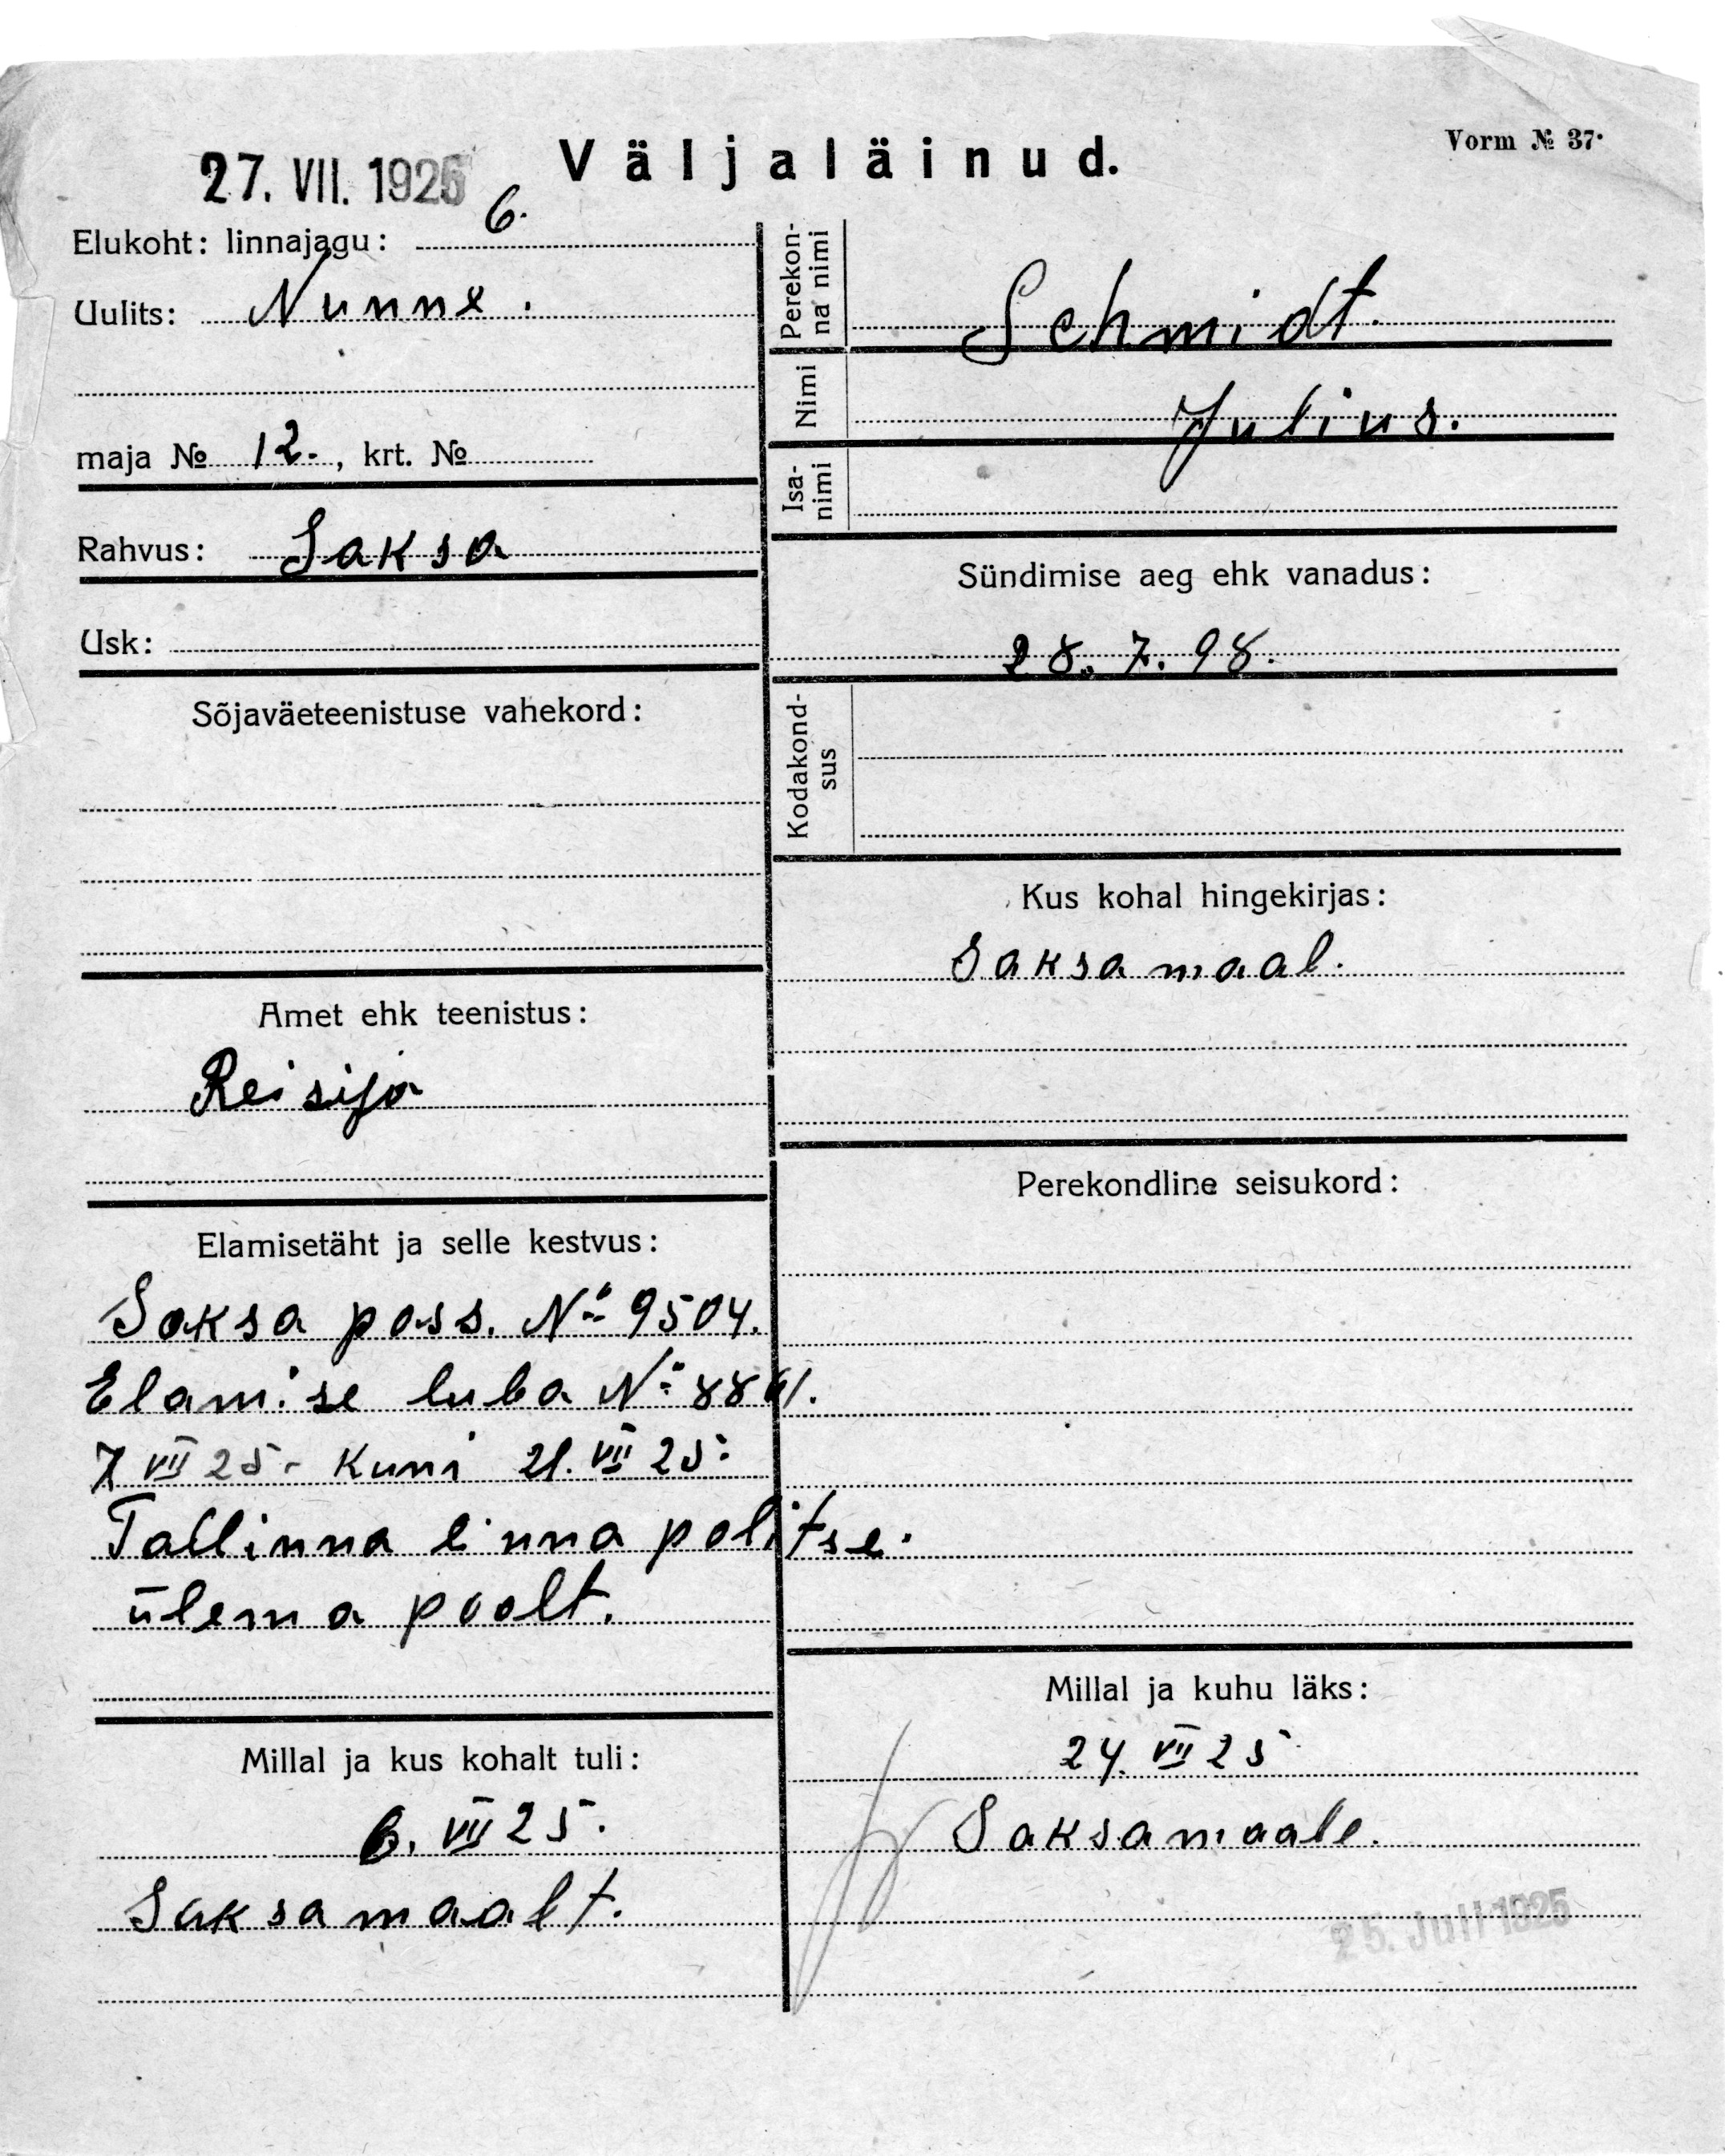 Vorm № 37.
27. VII. 1925
Väljaläinud.
Elukoht: linnajagu: 6.
Uulits: Nunne.
maja № 12., krt. №
Rahvus: Saksa
Usk:
Sõjaväeteenistuse vahekord:
Amet ehk teenistus:
Reisija
Elamisetäht ja selle kestvus:
Saksa pass. № 9504.
Elamise luba №
7 VII 25 - Kuni 21. VII 25.
Tallinna linna politse.
ülema poolt.
Millal ja kus kohalt tuli:
6. VII 25.
Saksamaalt.
Perekon-
na nimi
Schmidt.
Nimi
Julius.
Isa-
nimi
Sündimise aeg ehk vanadus:
28. 7. 98.
Kodakond-
sus
Kus kohal hingekirjas:
Saksamaal.
Perekondline seisukord:
Millal ja kuhu läks:
24. VII 25
Saksamaale.
25. Juli 1925